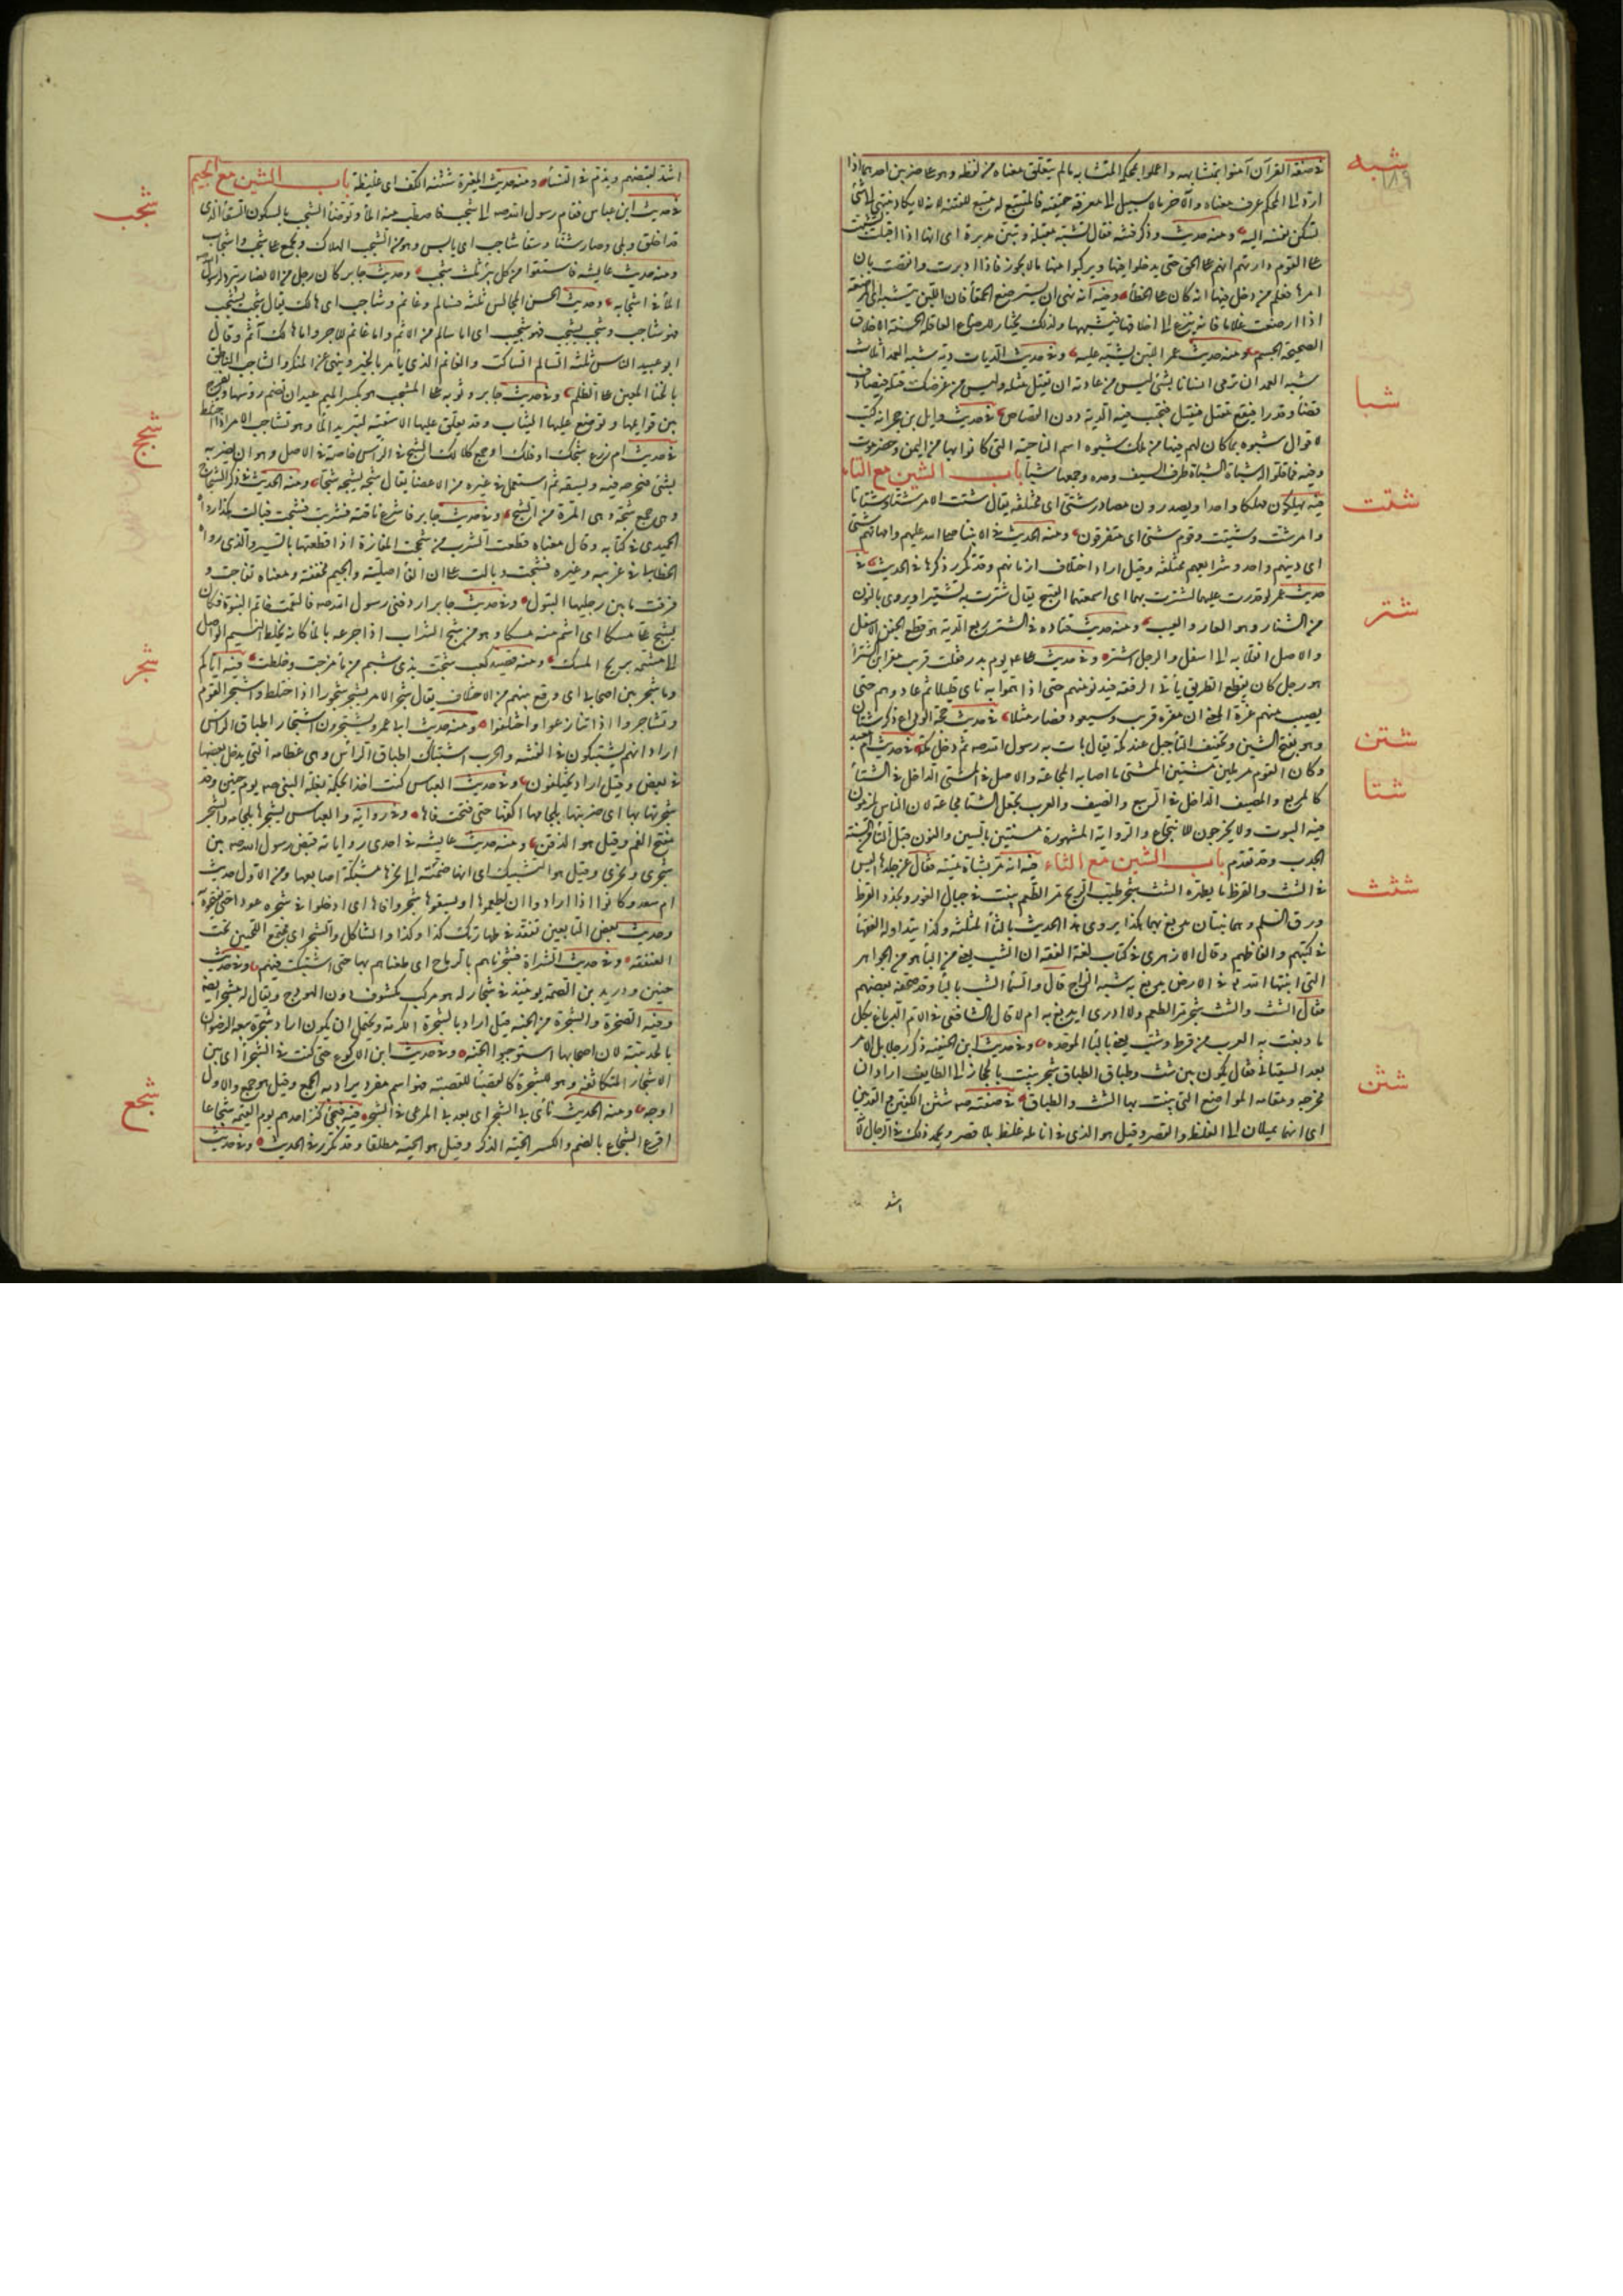 شبه
١٨٩
في صفة القرآن آمنوا بمتشابهه واعملوا بمحكمه المتشابه مالم يتعلق معناه من لفظه وهو على ضربين احدهما اذا
رد الى المحكم عرف معناه والآخر مالا سبيل الى معرفة حقيقته فالمتتبع له متبع للفتنة لانه لا يكاد ينتهي الى شئ
تسكن نفسه اليه ومنه حديث وذكر فتنة فقال تشبه مقبلة وتبين مدبرة اى انها اذا اقبلت شبهت
على القوم وارتهم انهم على الحق حتى يدخلوا فيها ويركبوا منها مالا يجوز فاذا ادبرت وانقضت بان
امرها فعلم من دخل فيها انه كان على الخطأ وفيه انه نهى ان تسترضع الحمقأ فان اللبن يتشبه اى المرضعة
اذا ارضعت غلاما فانه ينزع الى اخلاقها فيشبهها ولذلك يختار للرضاع العاقلة الحسنة الاخلاق
الصحيحة الجسم ومنه حديث عمر اللبن يشبه عليه وفي حديث الديات دية شبه العمد اثلاث
شبه العمد ان ترمى انسانا بشئ ليس من عادته ان يقتل مثله وليس من غرضك قتله فيصادف
قضأ وقدرا فيقع فى مقتل فيقتل فتجب فيه الدية دون القصاص
شبا
في حديث وايل بن حجر انه كتب
لاقوال شبوه بما كان لهم فيها من ملك شبوه اسم الناحية التى كانوا بها من اليمن وحضرموت
وفيه فما فلوا له شباة الشباة طرف السيف وحده وجمعها شبا باب الشين مع التاء
شتت
فيه يهلكون مهلكا واحدا ويصدرون مصادر شتى اى مختلفة يقال شتت الامر شتا وشتاتا
وامر شت وشتيت وقوم شتى اى متفرقون ومنه الحديث في الانبيا عليهم وامهاتهم شتى
اى دينهم واحد وشرايعهم مختلفة وقيل اراد اختلاف ازمانهم وقد تكرر ذكرها في الحديث
شتر
في حديث عمر لو قدرت عليهما لشترت بهما اى اسمعتهما القبيح يقال شترت به تشتيرا ويروى بالنون
من الشنار وهو العار والعيب ومنه حديث قتاده في الشتر ربع الدية هو قطع الجفن الاسفل
والاصل انقلابه الى اسفل والرجل اشتر وفي حديث على يوم بدر فقلت قريب مفر ابن الشترأ
هو رجل كان يقطع الطريق يأتى الرفقة فيدنو منهم حتى اذا هموا به نأى قليلا ثم عاودهم حتى
يصيب منهم غرة المعنى ان مفره قريب وسيعود فصار مثلا
شتن
في حديث حجة الوداع ذكر شتان
وهو بفتح الشين وتخفيف التا جبل عند مكة يقال بات به رسول الله صلعم ثم دخل مكة
شتا
في حديث ام معبد
وكان القوم مرملين مشتين المشتى ما اصابه المجاعة والاصل في المشتى الداخل في الشتأ
كالمربع والمصيف الداخل في الربيع والصيف والعرب تجعل الشتا مجاعة لان الناس يلزمون
فيه البيوت ولا يخرجون للانتجاع والرواية المشهورة مسنتين بالسين والنون قبل التأ من السنة
الجدب وقد تقدم باب الشين مع الثاء
شثث
فيه انه مر بشاة ميتة فقال عن جلدها اليس
في الشث والقرظ ما يطهره الشث شجر طيب الريح مر الطعم ينبت في جبال الغور ونجد والقرظ
ورق السلم وهما نبتان يدبغ بهما هكذا يروى هذا الحديث بالثأ المثلثة وكذا يتداوله الفقهأ
في كتبهم والفاظهم وقال الازهرى في كتاب لغة الفقه ان الشب يعنى بالبأ هو من الجواهر
التى انبتها الله تعالى في الارض يدبغ به شبه الزاج قال والسماع الشب بالبأ وقد صحفه بعضهم
فقال الشث والشث شجر مر الطعم ولا ادرى ايدبغ به ام لا وقال الشافعى في الام الدباغ بكل
ما دبغت به العرب من قرظ وشب يعنى بالبأ الموحده وفي حديث ابن الحنيفه ذكر رجلا يلى الامر
بعد السفيانى فقال يكون بين شث وطباق الطباق شجر ينبت بالحجاز الى الطايف اراد ان
مخرجه ومقامه المواضع التى ينبت بها الشث والطباق
شثن
في صفته صلعم شثن الكفين والقدمين
اى انهما يميلان الى الغلظ والقصر وقيل هو الذى في انامله غلظ بلا قصر ويحمد ذلك في الرجال لانه
اشد
اشد لقبضهم ويذم في النسأ ومنه حديث المغيرة شثنة الكف اى غليظة باب الشين مع الجيم
شجب
في حديث ابن عباس فقام رسول الله صلعم الى شجب فاصطب منه المأ وتوضأ الشجب بالسكون السقأ الذى
قد اخلق وبلى وصار شنا وسقأ شاجب اى يابس وهو من الشجب الهلاك ويجمع على شجب واشجاب
ومنه حديث عايشه فاستقوا من كل بئر ثلث شجب وحديث جابر كان رجل من الانصار يبرد لرسول الله
المأ في اشجابه وحديث الحسن المجالس ثلثة فسالم وغانم وشاجب اى هالك يقال شجب يشجب
فهو شاجب وشجب يشجب فهو شجب اى اما سالم من الاثم واما غانم للاجر واما هالك آثم وقال
ابو عبيد الناس ثلثة السالم الساكت والغانم الذى يأمر بالخير وينهى عن المنكر والشاجب الناطق
بالخنا المعين على الظلم وفي حديث جابر وثوبه على المشجب هو بكسر الميم عيدان تضم روسها ويفرج
بين قوايمها وتوضع عليها الثياب وقد يعلق عليها الاسقية لتبريد المأ وهو من تشاجب الامر اذا اختلط
شجج
في حديث ام زرع شجك او فلك او جمع كلا لك الشج في الرأس خاصة في الاصل وهو ان يضربه
بشئ فيجرحه فيه ويشقه ثم استعمل في غيره من الاعضأ يقال شجه يشجه شجا ومنه الحديث في ذكر الشجاج
وهى جمع شجة وهى المرة من الشج وفي حديث جابر فاشرع ناقته فشربت فشجت فبالت هكذا رواه
الحميدى في كتابه وقال معناه قطعت الشرب من شججت المفازة اذا قطعتها بالسير والذى رواه
الخطابى في غريبه وغيره فشجت وبالت على ان الفأ اصلية والجيم مخففة ومعناه تفاجت و
فرقت ما بين رجليها لتبول وفي حديث جابر اردفنى رسول الله صلعم فالتقمت خاتم النبوة فكان
يشج على مسكا اى اشم منه مسكا وهو من شج الشراب اذا مزجه بالمأ كانه يخلط النسيم الواصل
الى مشمه بريح المسك ومنه قصيد كعب شجت بذى شبم من مأ مزجت وخلطت
شجر
فيه اياكم
وما شجر بين اصحابى اى وقع بينهم من الاختلاف يقال شجر الامر يشجر شجورا اذا اختلط واشتجر القوم
وتشاجروا اذا تنازعوا واختلفوا ومنه حديث ابى عمرو يشتجرون اشتجار اطباق الرأس
اراد انهم يشتبكون في الفتنه والحرب اشتباك اطباق الرأس وهى عظامه التى يدخل بعضها
في بعض وقيل اراد يختلفون وفي حديث العباس كنت اخذا بحكمة بغلة النبى صلعم يوم حنين وقد
شجرتها بها اى ضربتها بلجامها اكفها حتى فتحت فاها وفي رواية والعباس يشجرها بلجامه والشجر
مفتح الفم وقيل هو الذقن ومنه حديث عايشه في احدى رواياته قبض رسول الله صلعم بين
شجرى ونحرى وقيل هو التشبيك اى انها ضمته الى نحرها مشبكة اصابعها ومن الاول حديث
ام سعد وكانوا اذا ارادوا ان يطعموها او يسقوها شجروا فاها اى ادخلوا في شجره عودا حتى يفتحوه
وحديث بعض التابعين تفقد في طهارتك كذا وكذا والشاكل والشجر اى مجتمع اللحيين تحت
العنفقه وفي حديث الشراة فشجرناهم بالرماح اى طعناهم بها حتى اشتبكت فيهم وفي حديث
حنين ودريد بن الصمة يومئذ في شجار له هو مركب مكشوف دون الهودج ويقال له مشجر ايضا
وفيه الصخرة والشجرة من الجنة قيل اراد بالشجرة الكرمة ويحتمل ان يكون اراد شجرة بيعة الرضوان
بالحديبية لان اصحابها استوجبوا الجنة وفي حديث ابن الاكوع حتى كنت في الشجرأ اى بين
الاشجار المتكاثفة وهو للشجرة كالقصبأ للقصبة فهو اسم مفرد يراد به الجمع وقيل هو جمع والاول
اوجه ومنه الحديث نأى بى الشجر اى بعد بى المرعى في الشجر
شجع
فيه فيجئ كنز احدهم يوم القيمه شجاعا
اقرع الشجاع بالضم والكسر الحية الذكر وقيل هو الحية مطلقا وقد تكرر في الحديث وفي حديث